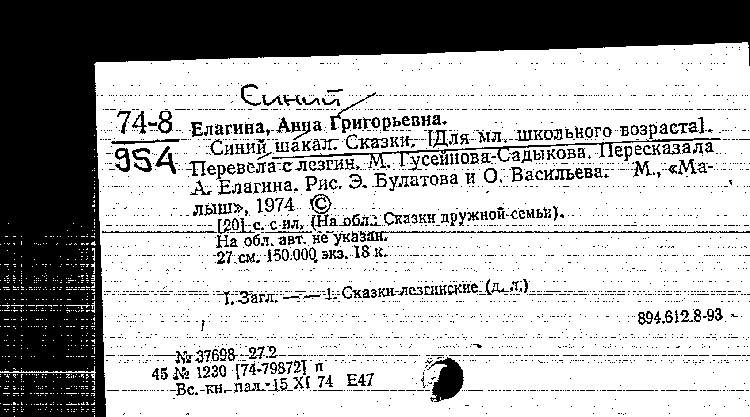 Синий
74-8
954
Елагина, Анна Григорьевна.
Синий шакал. Сказки. [Для мл. школьного возраста].
Перевела с лезгин. М. Гусейнова-Садыкова. Пересказала
А. Елагина. Рис. Э. Булатова и О. Васильева. М., «Ма-
лыш», 1974 ©
[20] с. с ил. (На обл.: Сказки дружной семьи).
На обл. авт. не указан.
27 см. 150.000 экз. 18 к.
I. Загл. — — 1. Сказки лезгинские (д. л.)
894.612.8-93
№ 37698 27.2
45 № 1230 [74-79872] п
Вс. кн. пал. 15 XI 74 Е47